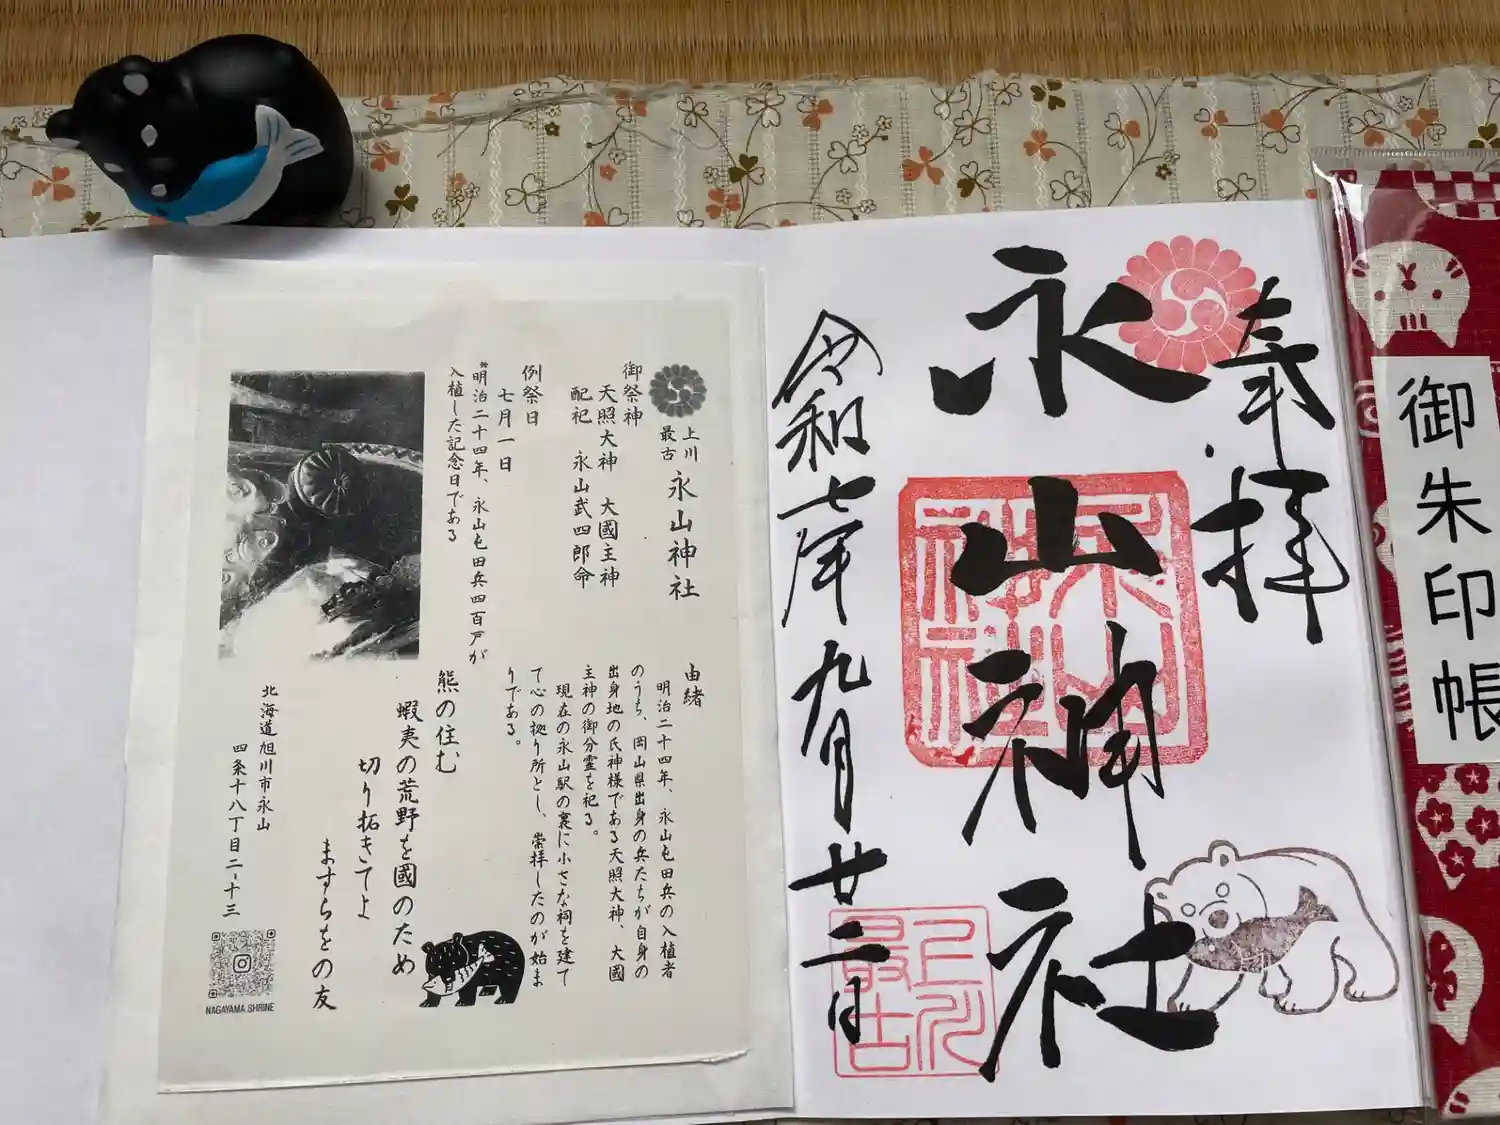 御朱印帳
奉拝
永山神社
令和七年九月廿二日
永山神社
上川最古
上川
最古
永山神社
御祭神
天照大神　大國主神
配祀　永山武四郎命
例祭日
七月一日
※明治二十四年、永山屯田兵四百戸が
入植した記念日である
由緒
明治二十四年、永山屯田兵の入植者
のうち、岡山県出身の兵たちが自身の
出身地の氏神様である天照大神、大國
主神の御分霊を祀る。
現在の永山駅の裏に小さな祠を建て
て心の拠り所とし、崇拝したのが始ま
りである。
熊の住む
蝦夷の荒野を國のため
切り拓きてよ
ますらをの友
北海道旭川市永山
四条十八丁目二-十三
NAGAYAMA SHRINE